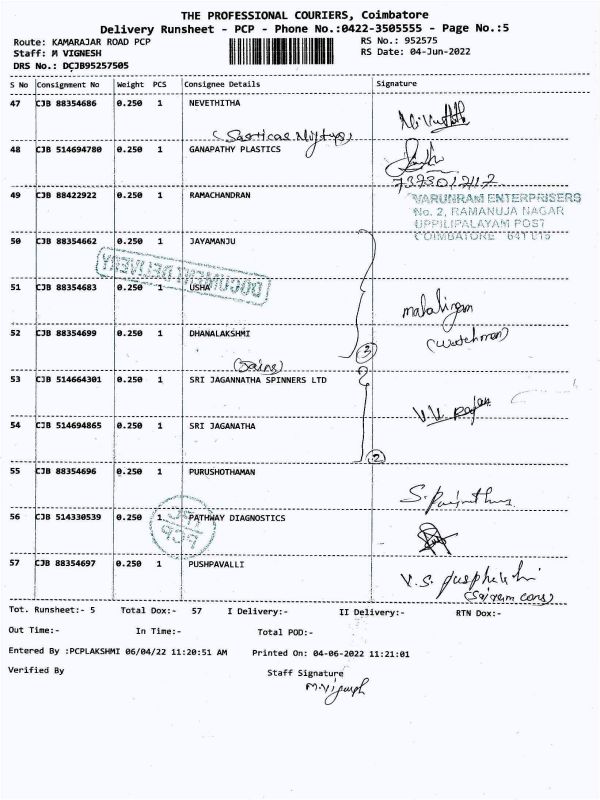 THE PROFESSIONAL COURIERS, Coimbatore
Delivery Runsheet - PCP - Phone No.:0422-3505555 - Page No.:5
Route: KAMARAJAR ROAD PCP RS No.: 952575
Staff: M VIGNESH RS Date: 04-Jun-2022
DRS No.: DCJB95257505
S No Consignment No Weight PCS Consignee Details Signature
47 CJB 88354686 0.250 1 NEVETHITHA
48 CJB 514694780 0.250 1 GANAPATHY PLASTICS
7373012117
49 CJB 88422922 0.250 1 RAMACHANDRAN
VARUNRAM ENTERPRISERS
No. 2, RAMANUJA NAGAR
UPPILIPALAYAM POST
COIMBATORE 641 015
50 CJB 88354662 0.250 1 JAYAMANJU
DOCUMENT DELIVERY
51 CJB 88354683 0.250 1 USHA
52 CJB 88354699 0.250 1 DHANALAKSHMI
(Watchman)
3
53 CJB 514664301 0.250 1 SRI JAGANNATHA SPINNERS LTD
V.V. Rajan
54 CJB 514694865 0.250 1 SRI JAGANATHA
2
55 CJB 88354696 0.250 1 PURUSHOTHAMAN
56 CJB 514330539 0.250 1 PATHWAY DIAGNOSTICS
PCP
57 CJB 88354697 0.250 1 PUSHPAVALLI
Tot. Runsheet:- 5 Total Dox:- 57 I Delivery:- II Delivery:- RTN Dox:-
Out Time:- In Time:- Total POD:-
Entered By :PCPLAKSHMI 06/04/22 11:20:51 AM Printed On: 04-06-2022 11:21:01
Verified By Staff Signature